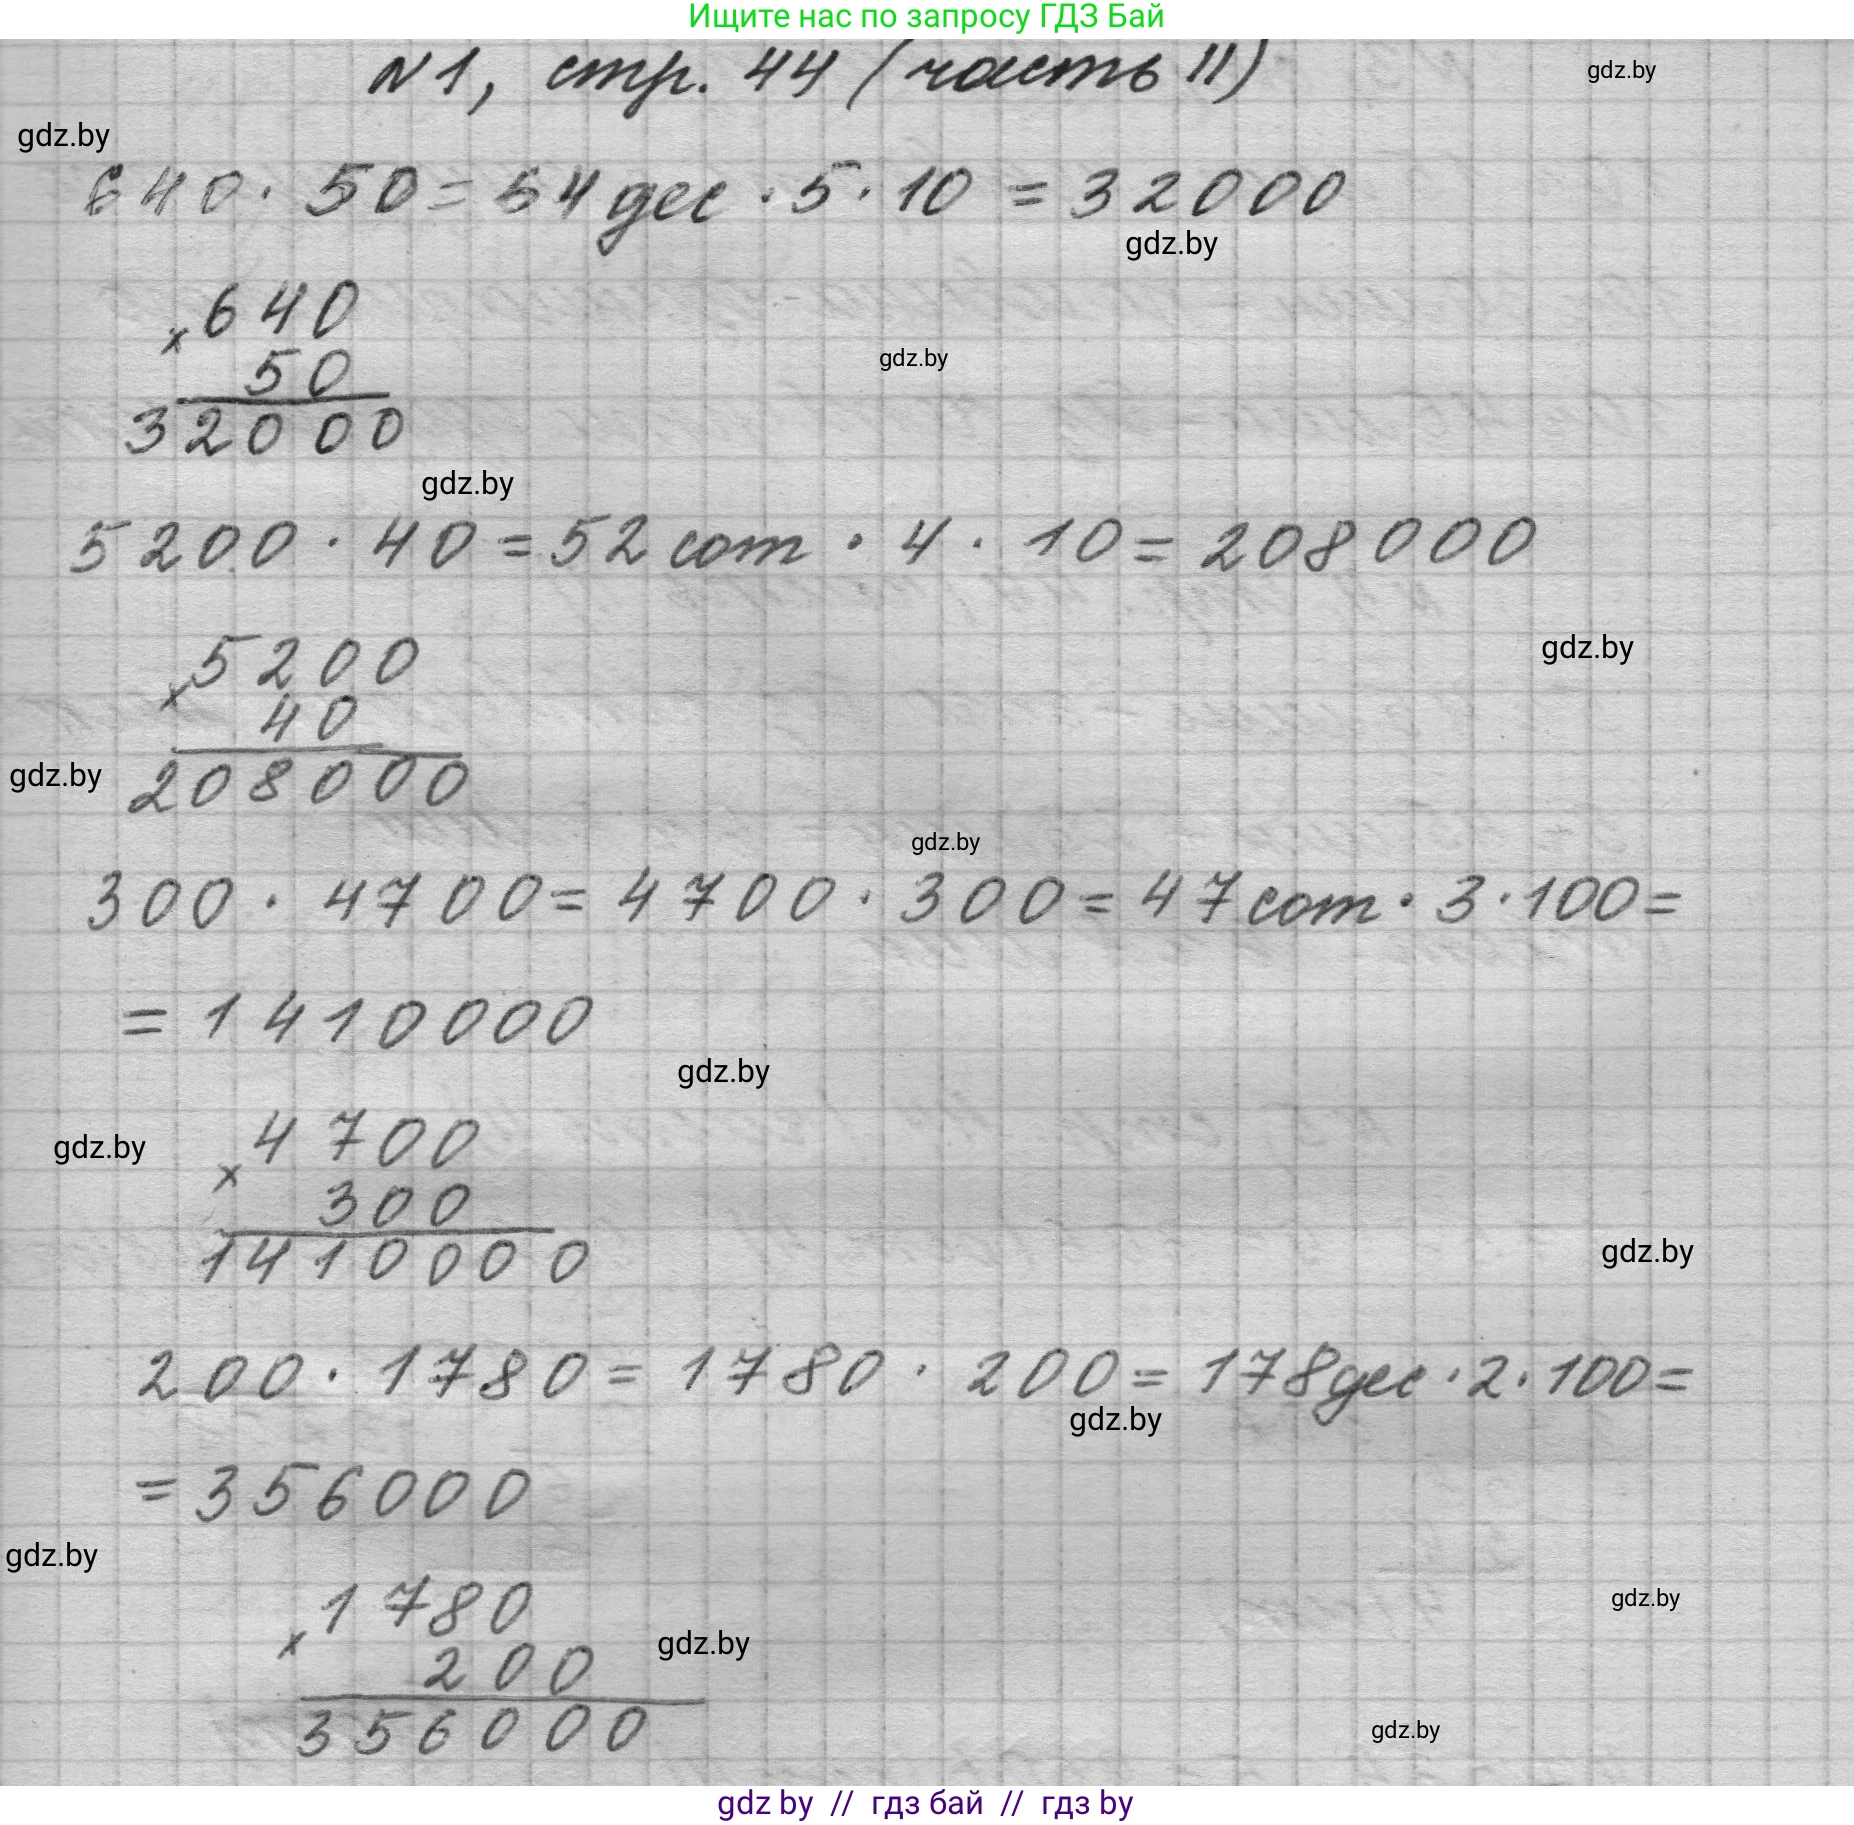 Ищите нас по запросу ГДЗ Бай
№1, стр. 44 (часть II)
gdz.by
gdz.by
640 · 50 = 64 дес · 5 · 10 = 32000
gdz.by
× 640
50
32000
gdz.by
gdz.by
5200 · 40 = 52 сот · 4 · 10 = 208000
× 5200
40
208000
gdz.by
gdz.by
gdz.by
300 · 4700 = 4700 · 300 = 47 сот · 3 · 100 =
= 1410000
gdz.by
gdz.by
× 4700
300
1410000
gdz.by
200 · 1780 = 1780 · 200 = 178 дес · 2 · 100 =
gdz.by
= 356000
gdz.by
× 1780
200
356000
gdz.by
gdz.by
gdz.by
gdz by // гдз бай // гдз by